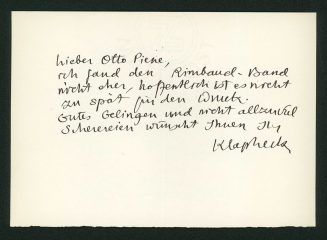 Lieber Otto Piene,
ich fand den Rimbaud-Band
nicht eher, hoffentlich ist es nicht
zu spät für den Druck.
Gutes Gelingen und nicht allzuviel
Scherereien wünscht Ihnen Ihr
Klapheck